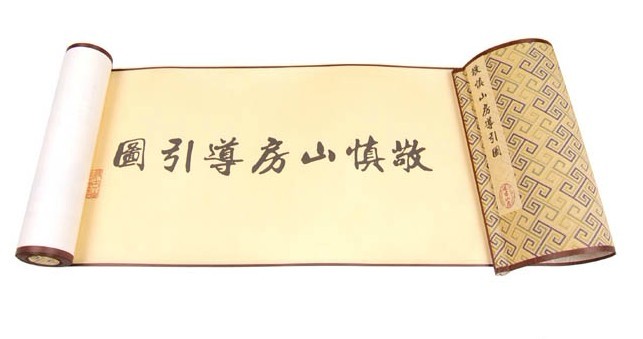 敬慎山房導引圖
敬慎山房導引圖